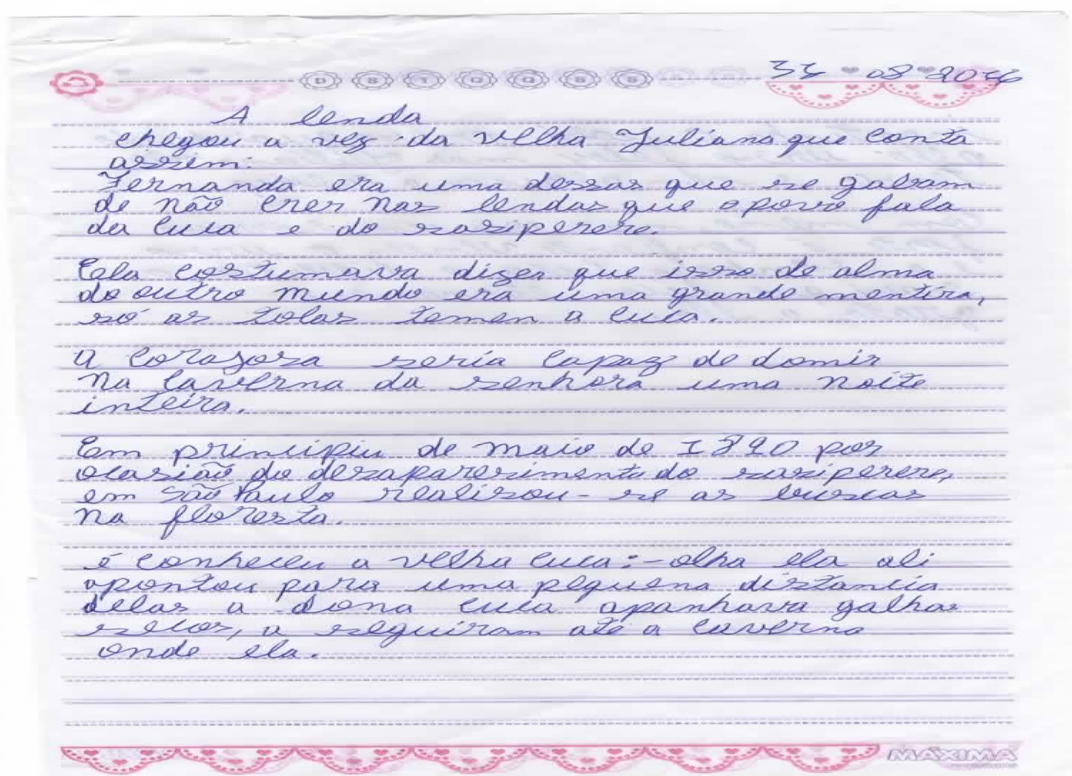 A lenda
chegou a vez da velha Juliana que conta
assim:
Fernanda era uma dessas que se gabam
de não crer nas lendas que o povo fala
da cuca e do sasiperere.
Ela costumava dizer que isso de alma
do outro mundo era uma grande mentira,
só as tolas temen a cuca.
a corajosa seria capaz de domir
na caverna da senhora uma noite
inteira.
Em principiu de maio de 1890 por
ocasião do desaparesimento do sasiperere,
em São Paulo realisou-se as buscas
na floresta.
é conheceu a velha cuca:-olha ela ali
apontou para uma pequena distancia
delas a dona cuca apanhava galhos
secos, a seguiram até a caverna
onde ela.
MÁXIMA